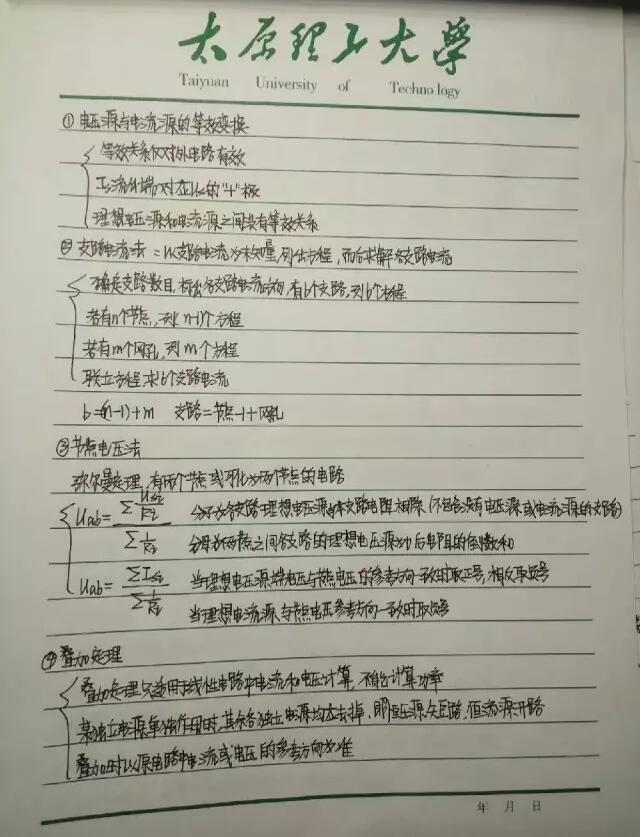 太原理工大学
Taiyuan University of Technology
① 电压源与电流源的等效变换
等效关系仅对外电路有效
Is流出端对应Us的"+"极
理想电压源和电流源之间没有等效关系
② 支路电流法=以支路电流为未知量,列出方程,而后求解各支路电流
确定支路数目,标出各支路电流方向,有b个支路,列b个方程
若有n个节点,列(n-1)个方程
若有m个网孔,列m个方程
联立方程求b个支路电流
b=(n-1)+m 支路=节点-1+网孔
③ 节点电压法
弥尔曼定理,有两个节点或可化为两个节点的电路
Uab= ΣUsi/Ri 分子为各支路理想电压源与本支路电阻相除(不包含没有电压源或电流源的支路)
Σ1/Ri 分母为两节点之间各支路的理想电压源为0后电阻的倒数和
Uab= ΣIsi 当理想电压源端电压与节点电压的参考方向一致时取正号,相反取负号
Σ1/Ri 当理想电流源与节点电压参考方向一致时取负号
④ 叠加定理
叠加定理只适用于线性电路中电流和电压计算,不能计算功率
某独立电源单独作用时,其余各独立电源均应去掉,即恒压源短路,恒流源开路
叠加时以原电路中电流或电压的参考方向为准
年 月 日